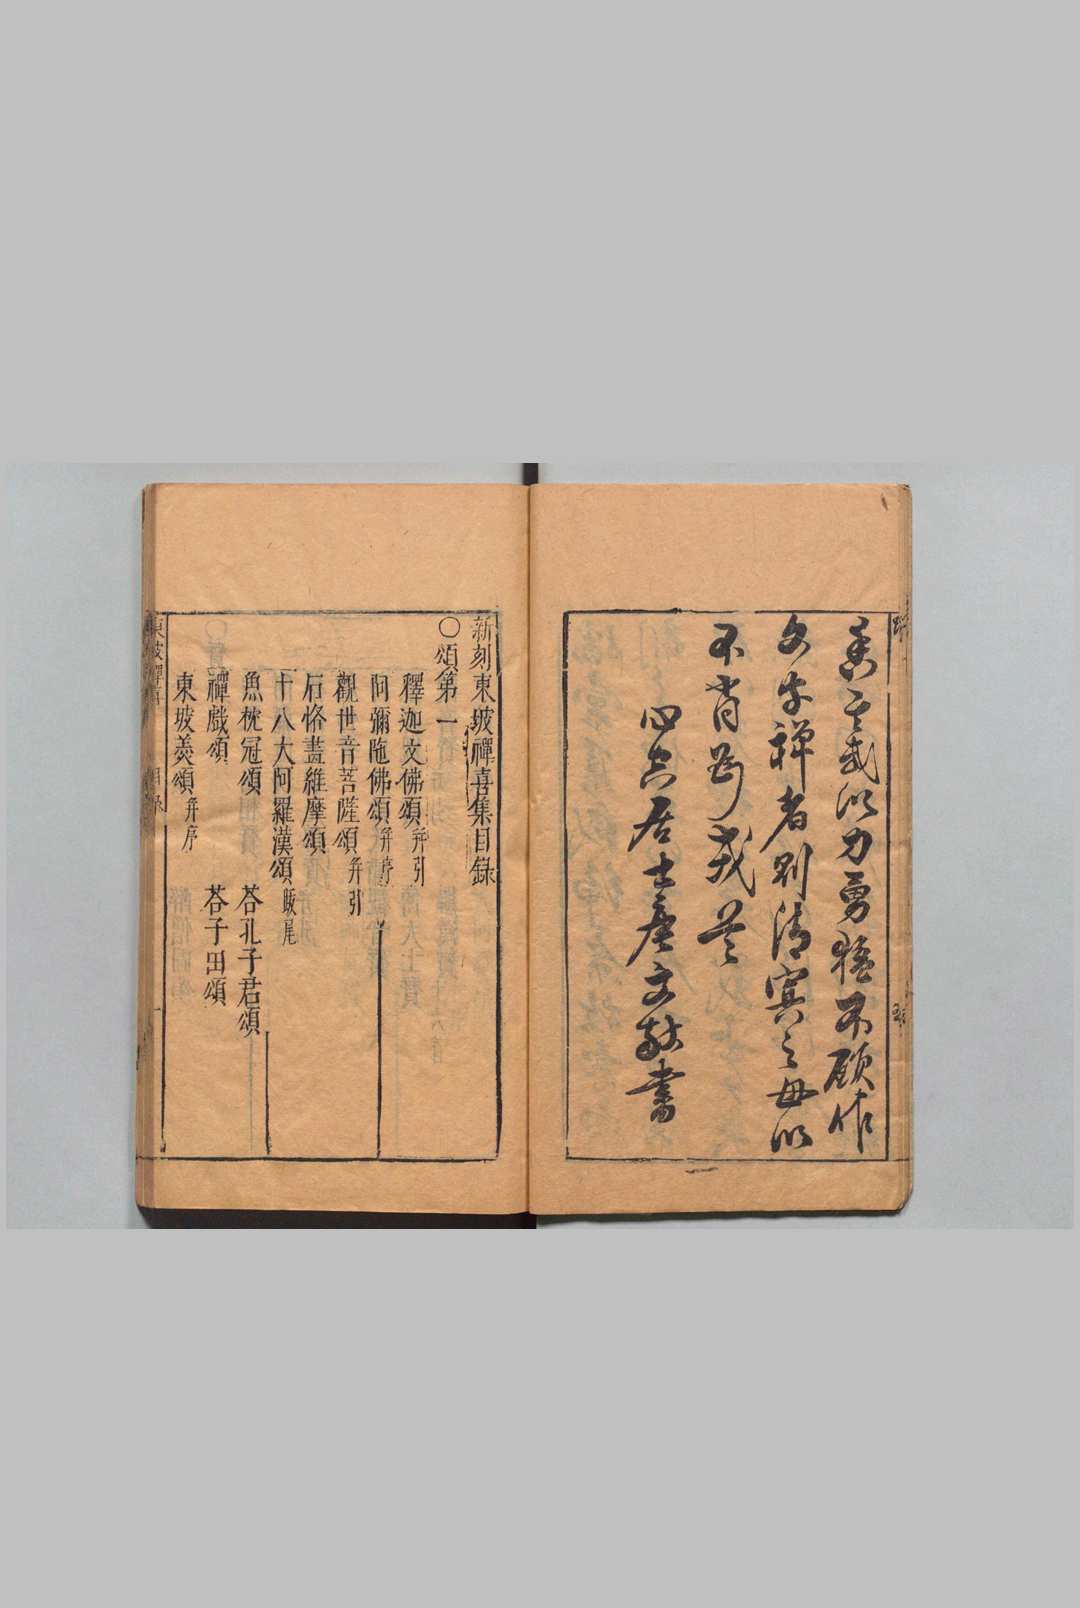 其或以力勇猛不顧作
文字禪者則請寘之毋以
不肖
居士唐文獻書
新刻東坡禪喜集目錄
○頌第一
釋迦文佛頌并引
阿彌陁佛頌并序
觀世音菩薩頌并引
石恪畫維摩頌
十八大阿羅漢頌跋尾
魚枕冠頌 荅孔子君頌
禪戲頌 荅子由頌
東坡羹頌并序
東坡禪喜 目錄 一